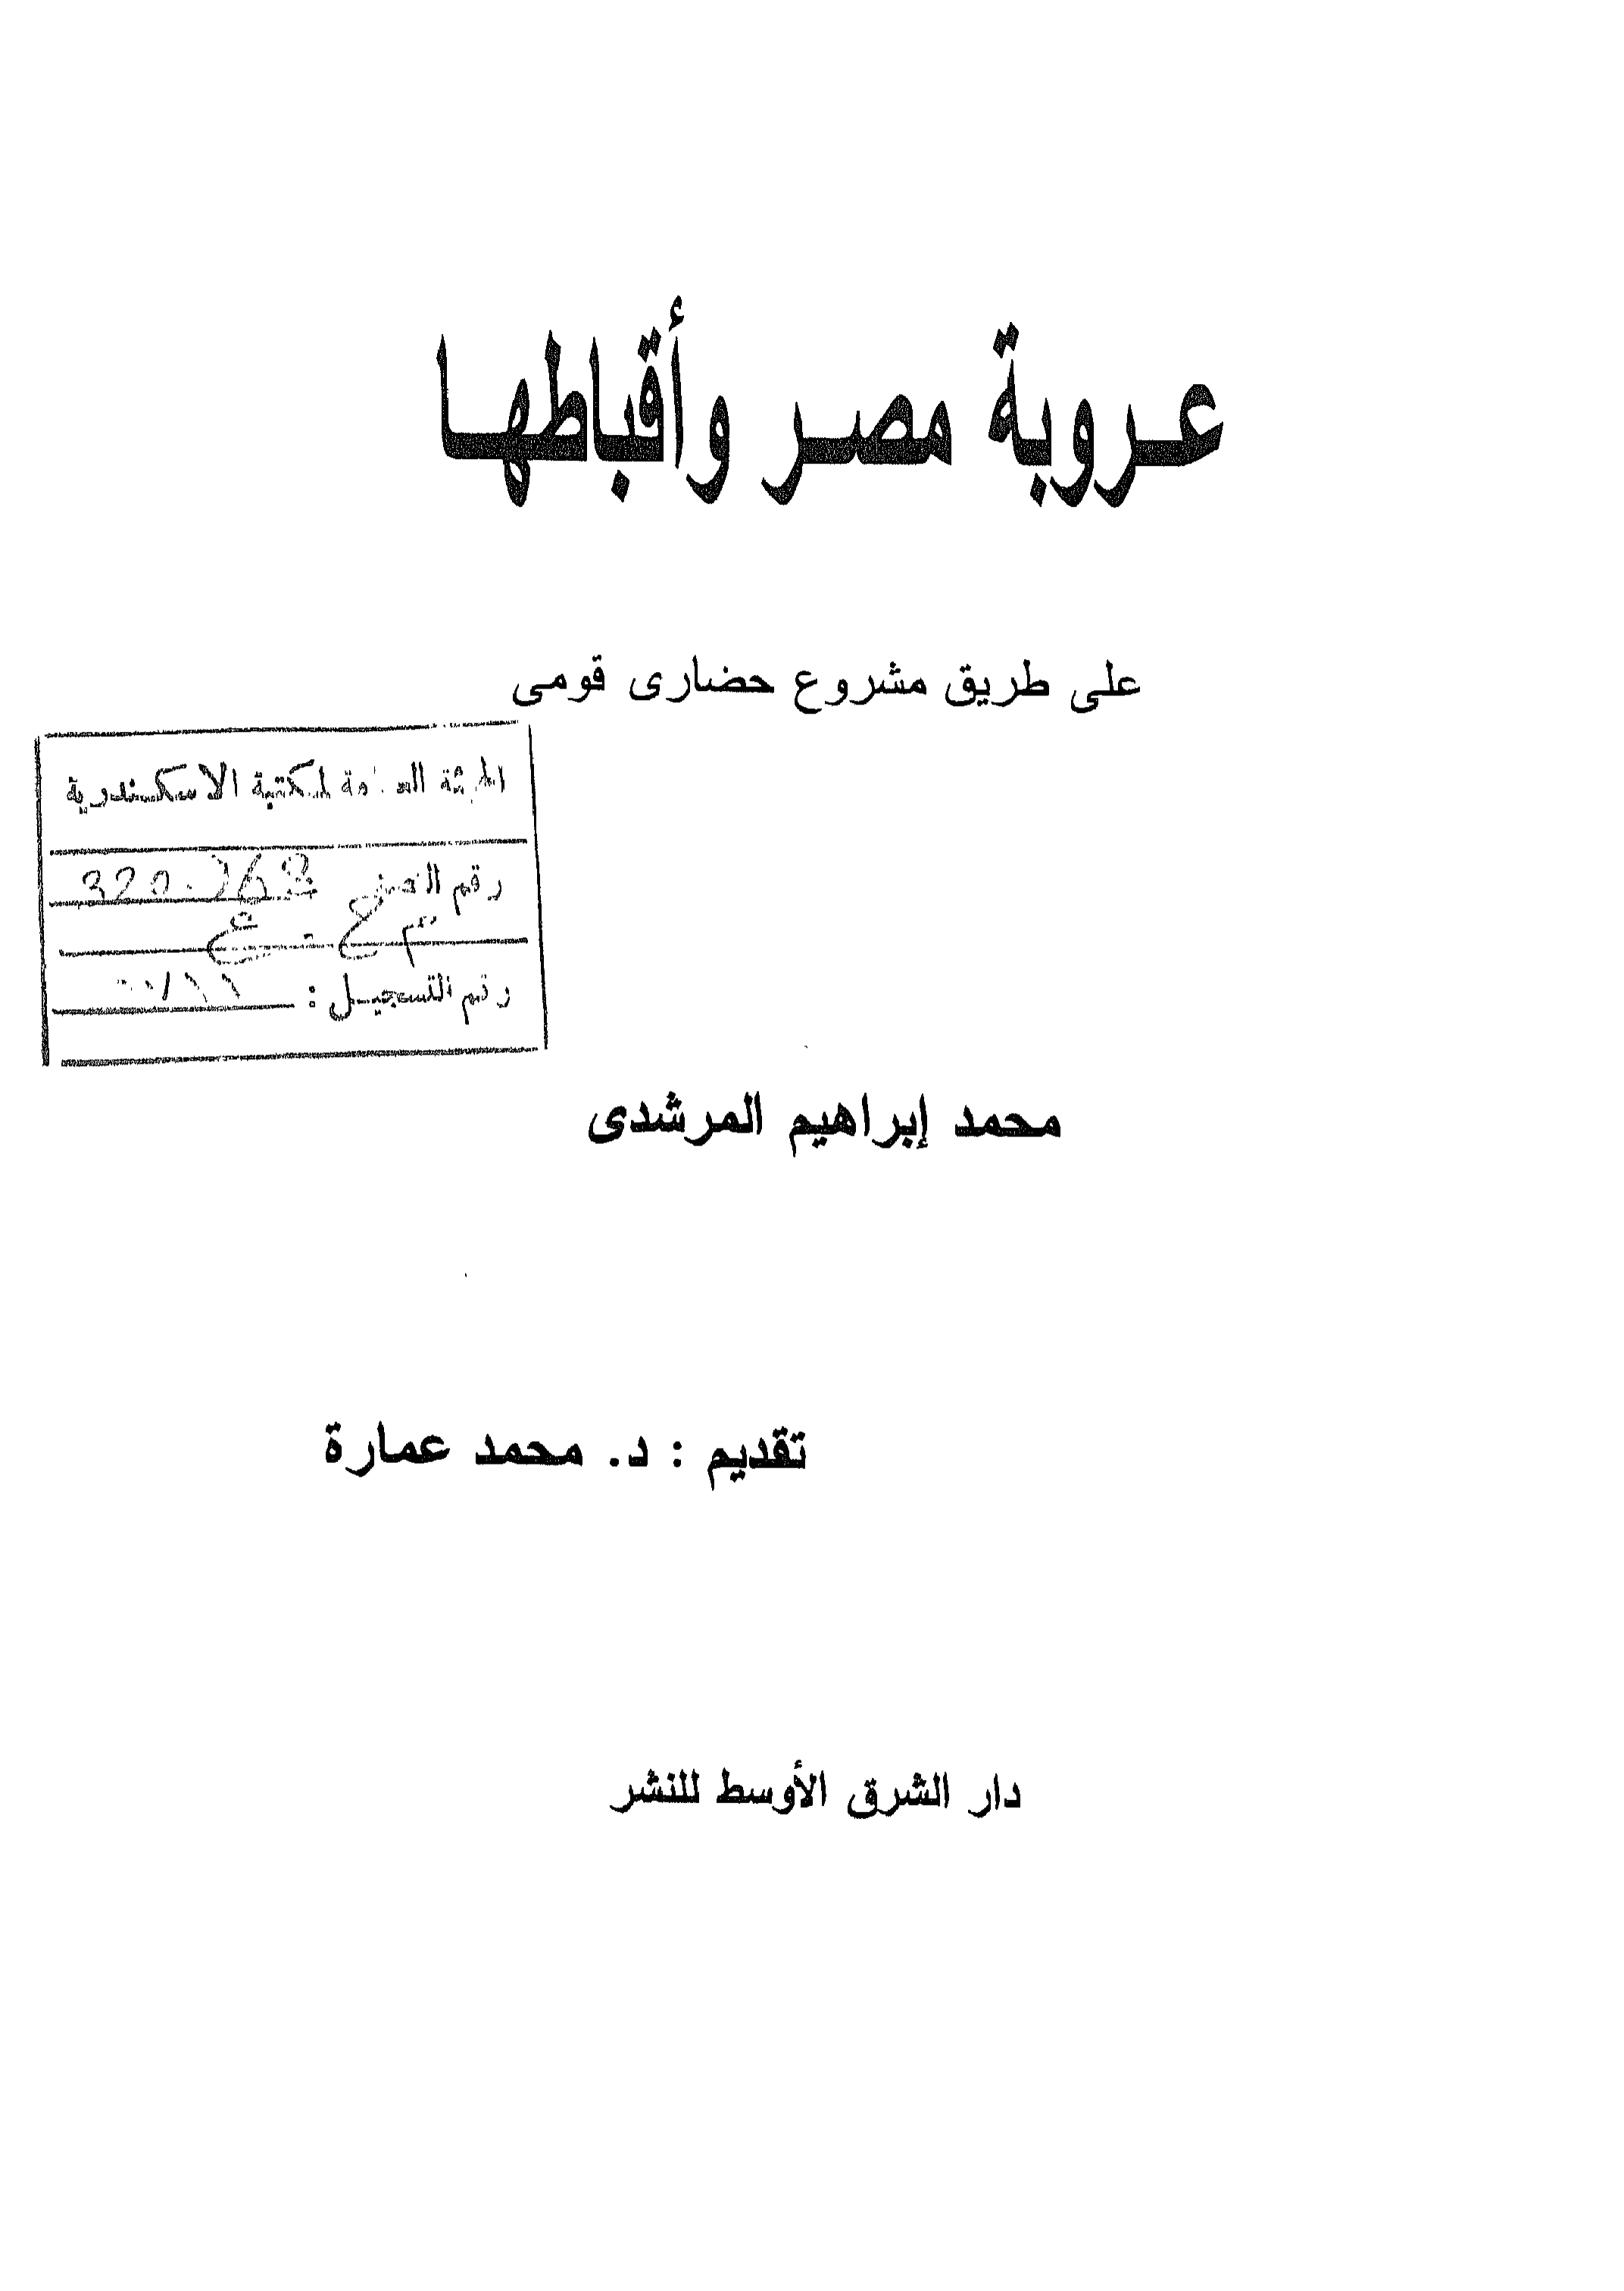 عروبة مصر وأقباطها
على طريق مشروع حضارى قومى
الهيئة العامة لمكتبة الاسكندرية
رقم
رقم التسجيل :
محمد إبراهيم المرشدى
تقديم : د. محمد عمارة
دار الشرق الأوسط للنشر